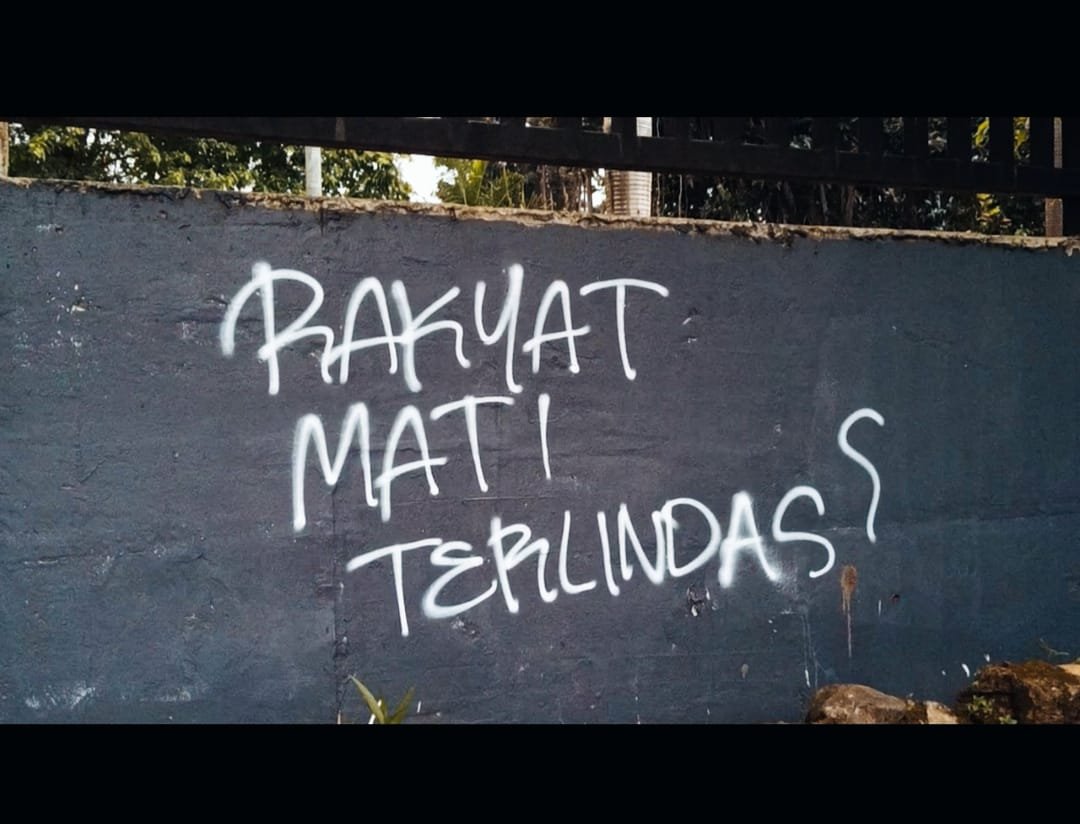 RAKYAT
MATI
TERLINDAS